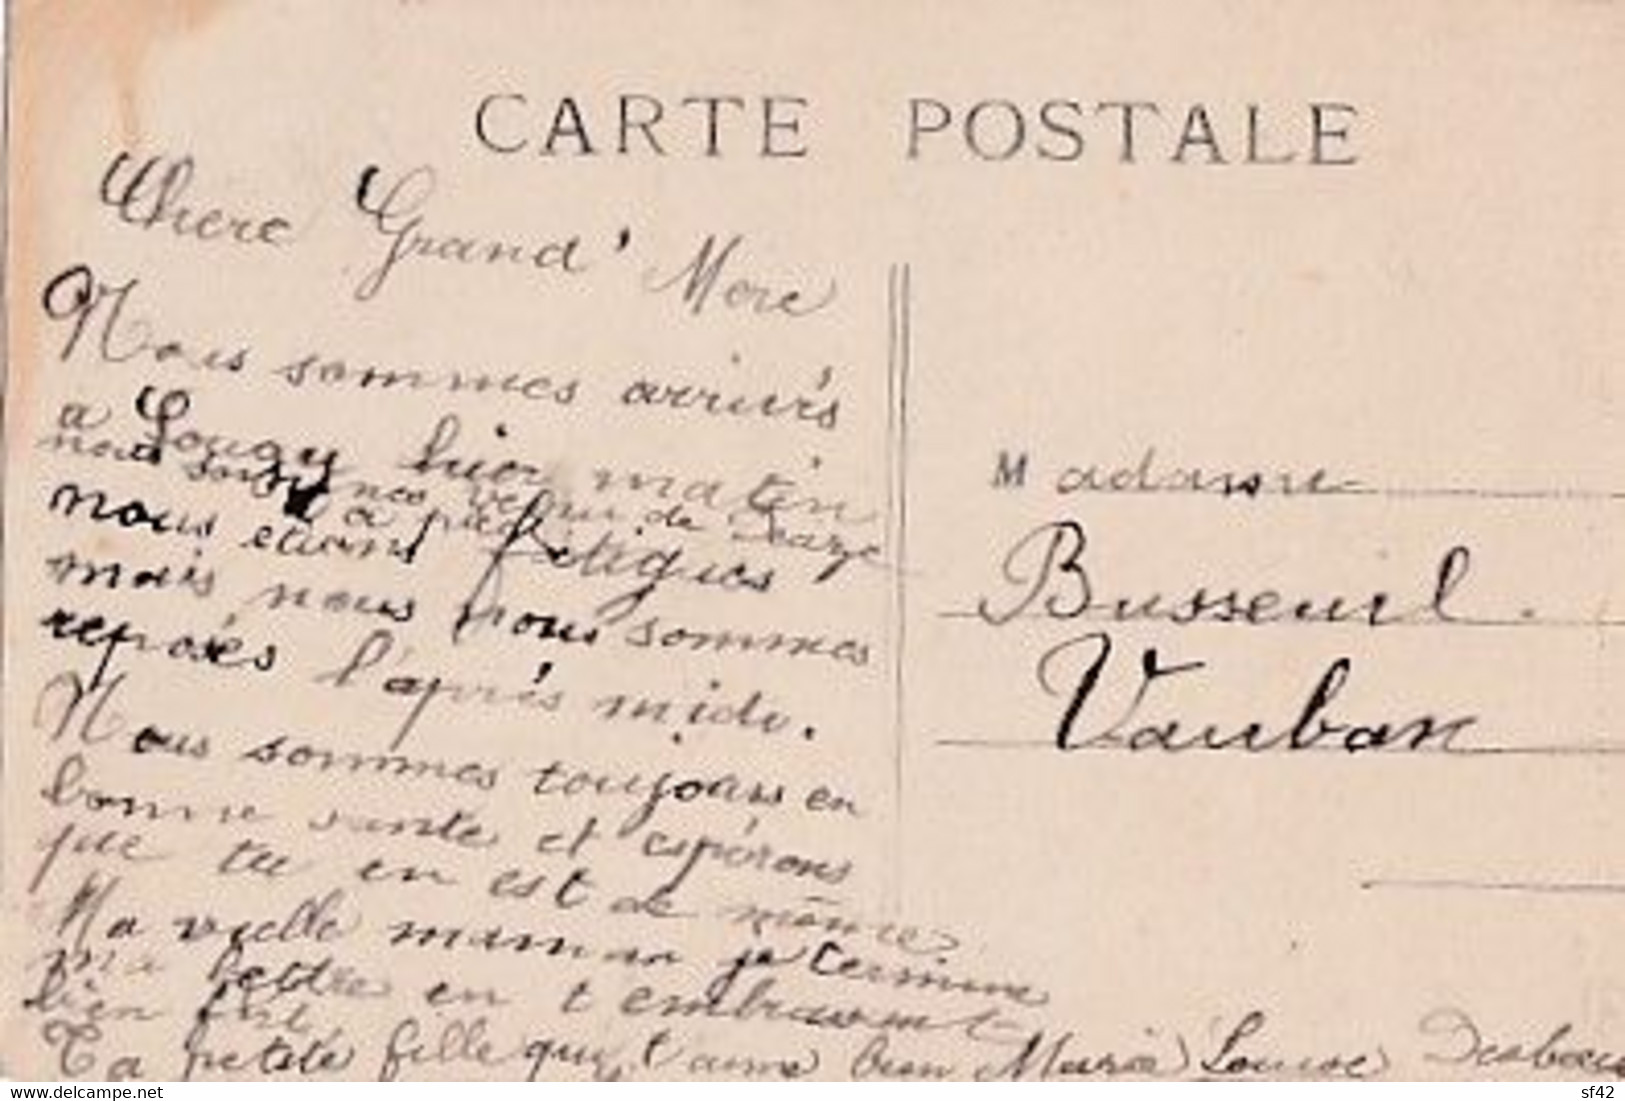 CARTE POSTALE
Chere Grand' Mere
Nous sommes arrivés
a Lougy hier matin
nous sommes venu de
a pied
nous etions fatigues
mais nous nous sommes
reposés l'après midi.
Nous sommes toujours en
bonne sante et espérons
que tu en est de même
Ma vielle maman je termine
ma lettre en t'embrassant
bien fort
Ta petite fille qui t'aime bien Marie Louise
Madame
Busseuil.
Vauban